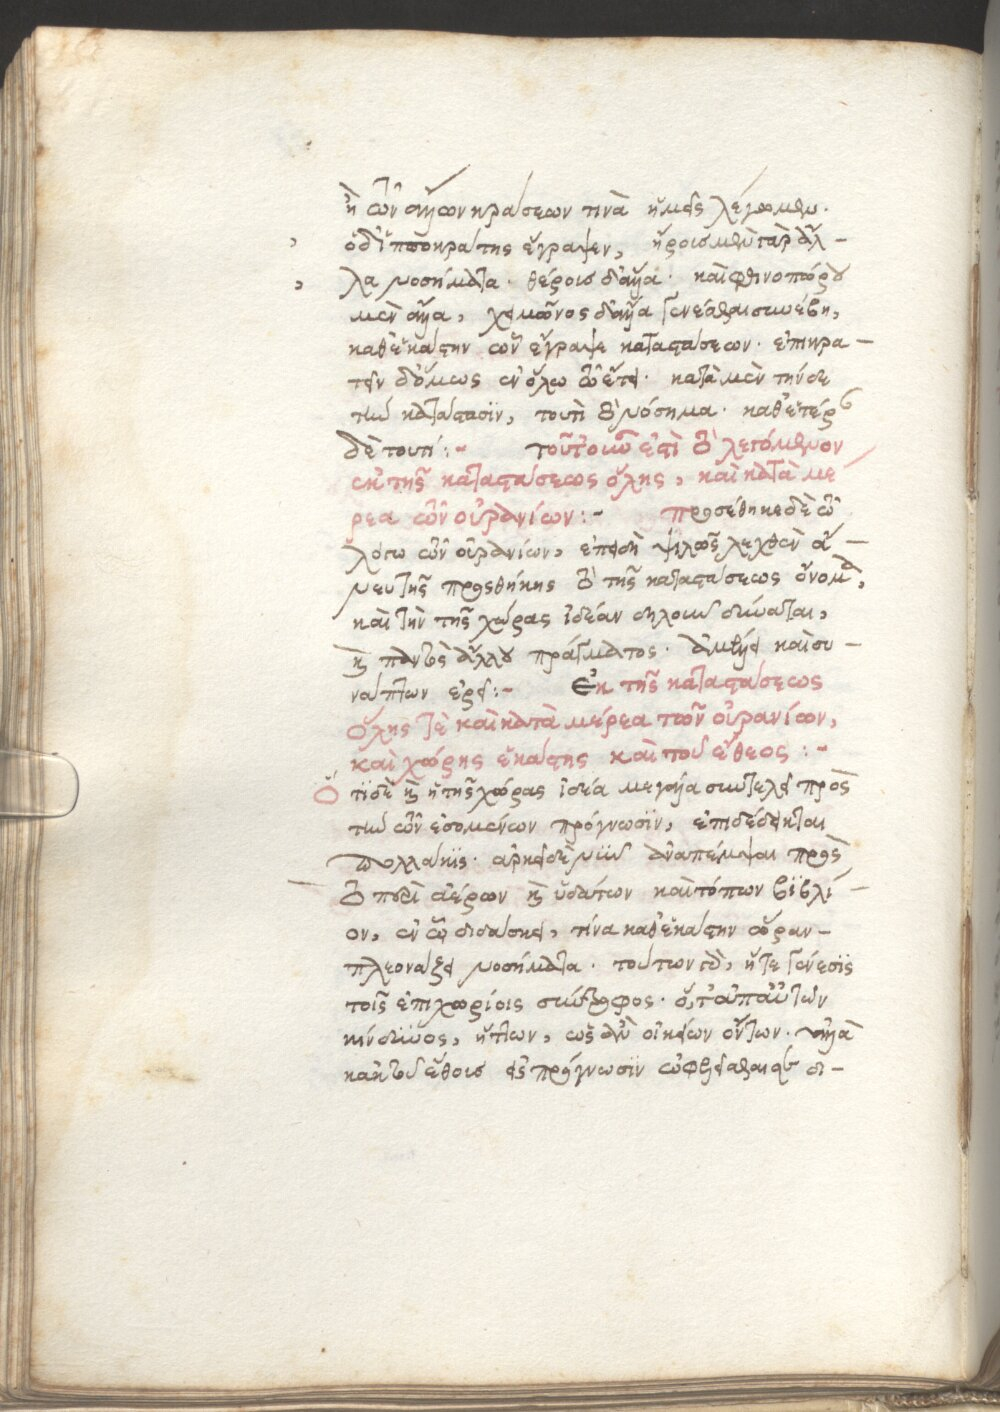 ἢ τῶν ἄλλων κράσεων τινὰ ἡμεῖς λέγομεν·
ὁ δ' ἱπποκράτης ἔγραψεν, ἦρος μὲν γὰρ ἄλ-
λα νοσήματα· θέρους δ' ἄλλα· καὶ φθινοπώρου
μὲν ἄλλα, χειμῶνος δ' ἄλλα γενέσθαι συνέβη,
καθ' ἑκάστην ὧν ἔγραψε καταστάσεων· ἐπικρα-
τεῖν δ' ὅμως ἐν ὅλῳ τῷ ἔτει· κατὰ μὲν τήνδε
τὴν κατάστασιν, τουτὶ τὸ νόσημα· καθ' ἑτέραν
δὲ τουτί:- τοῦτ' οὖν ἐστὶ τὸ λεγόμενον
ἐκ τῆς καταστάσεως ὅλης, καὶ κατὰ μέ
ρεα τῶν οὐρανίων:- προσέθηκε δὲ τῷ
λόγῳ τῶν οὐρανίων, ἐπειδὴ ψιλῶς λεχθὲν ἄ-
νευ τῆς προσθήκης τὸ τῆς καταστάσεως ὄνομα,
καὶ τὴν τῆς χώρας ἰδέαν δηλοῦν δύναται,
καὶ παντὸς ἄλλου πράγματος· ἀμέλει καὶ συ-
νάπτων ἐρεῖ:- Ἐκ τῆς καταστάσεως
ὅλης τὲ καὶ κατὰ μέρεα τῶν οὐρανίων,
καὶ χώρης ἑκάστης καὶ τοῦ ἔθεος:-
Ὅτι δὲ καὶ ἡ τῆς χώρας ἰδέα μεγάλα συντελεῖ πρὸς
τὴν τῶν ἐσομένων πρόγνωσιν, ἐπιδέδεικται
πολλάκις· ἀρκεῖ δὲ νῦν ἀναπέμψαι πρὸς
τὸ περὶ ἀέρων καὶ ὑδάτων καὶ τόπων βιβλί-
ον, ἐν ᾧ διδάσκει, τίνα καθ' ἑκάστην ὥραν
πλεονάζει νοσήματα· τούτων γὰρ, ἥ τε γένεσις
τοῖς ἐπιχωρίοις σύντροφος· ὅ, τ' ἀπ' αὐτῶν
κίνδυνος, ἥττων, ὡς ἂν οἰκείων ὄντων· ἀλλὰ
κἀκ τοῦ ἔθους εἰς πρόγνωσιν ὠφελεῖσθαι